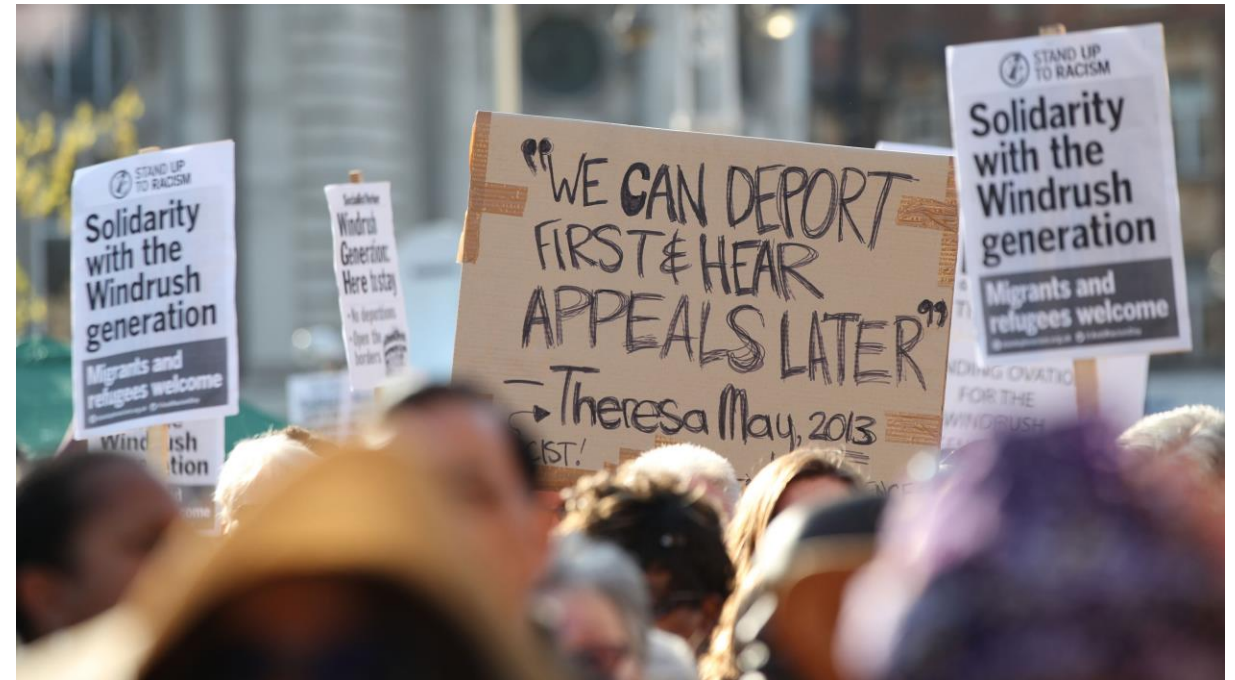 STAND UP
TO RACISM
Solidarity
with the
Windrush
generation
Migrants and
refugees welcome
Windrush
tion
come
Socialist Worker
Windrush
Generation:
Here to stay
• No deportations
• Open the
borders
"WE CAN DEPORT
FIRST & HEAR
APPEALS LATER"
– Theresa May, 2013
CIST!
STAND UP
TO RACISM
Solidarity
with the
Windrush
generation
Migrants and
refugees welcome
NDING OVATIO
FOR THE
WINDRUSH